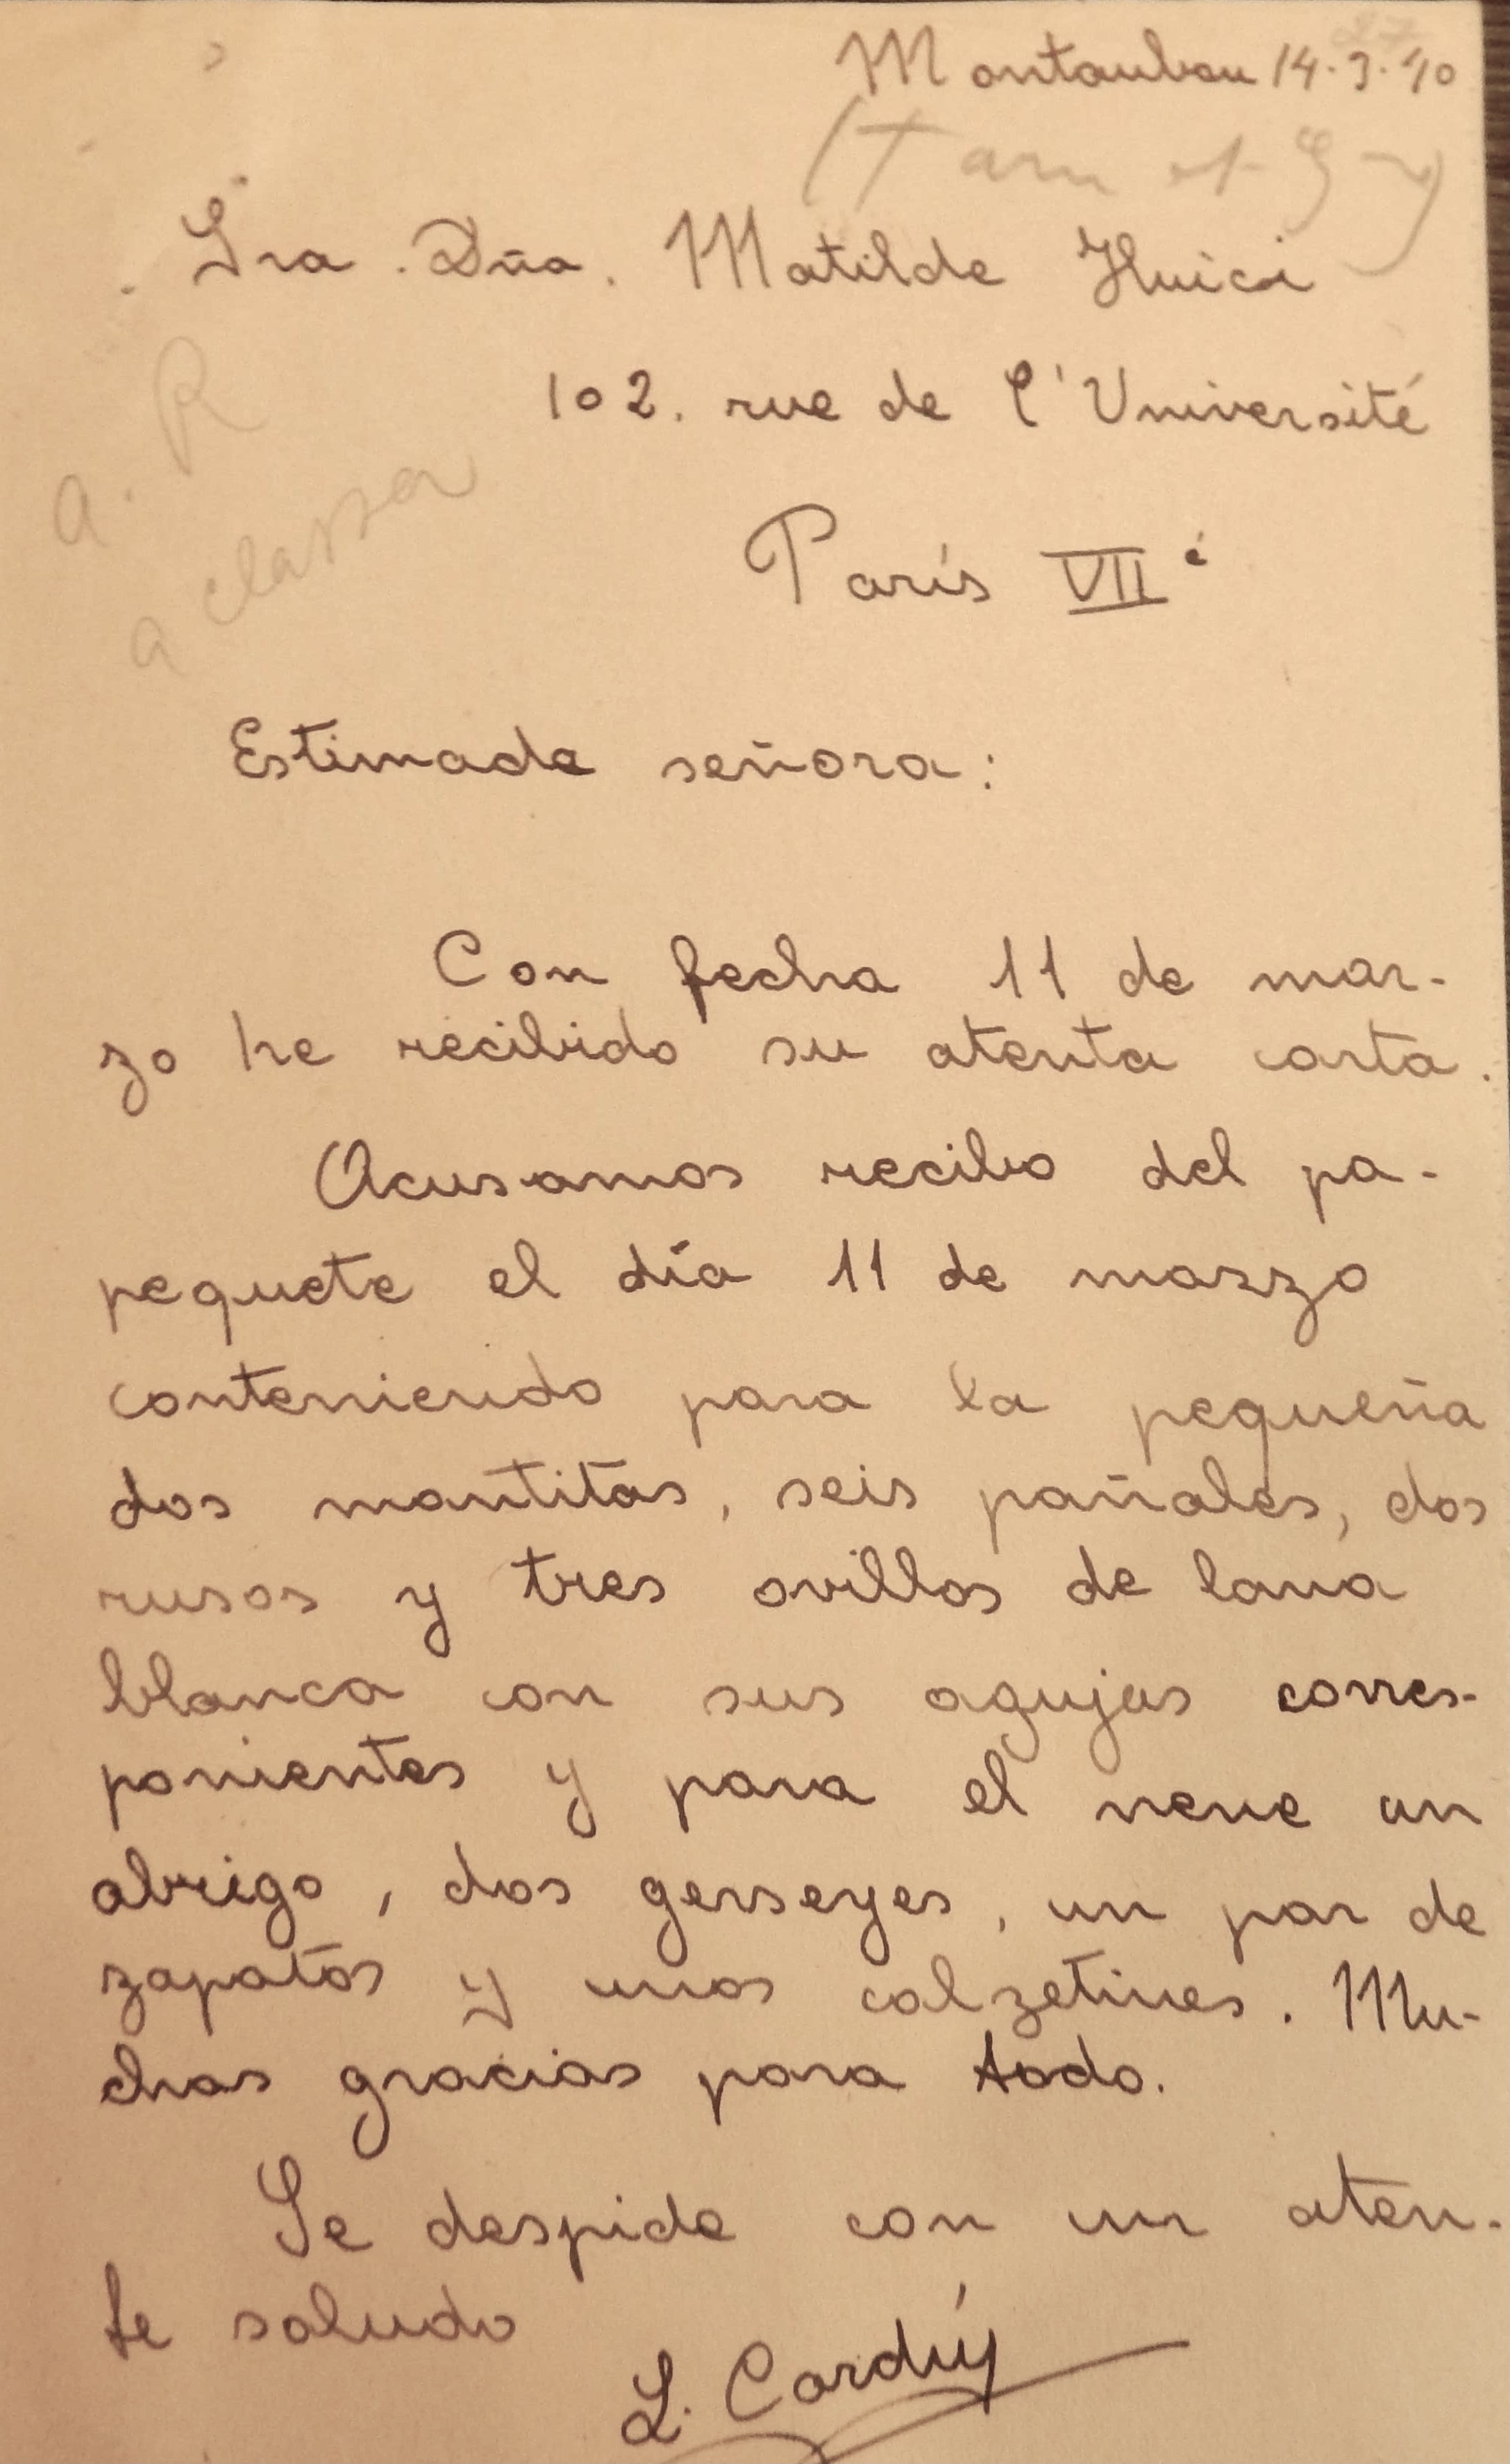 Montauban 14.3.40
(Tarn et G)
Sra. Dña. Matilde Huici
102. rue de l'Université
París VIIè
a. R
a classer
Estimade señora:
Con fecha 11 de mar-
zo he recibido su atenta carta.
Acusamos recibo del pa-
pequete el día 11 de marzo
conteniendo para la pequeña
dos mantitas, seis pañales, dos
rusos y tres ovillos de lana
blanca con sus agujas corres-
ponientes y para el nene un
abrigo, dos gerseyes, un par de
zapatos y unos calzetines. Mu-
chas gracias para todo.
Se despide con un aten-
te saludo
L. Cardúy